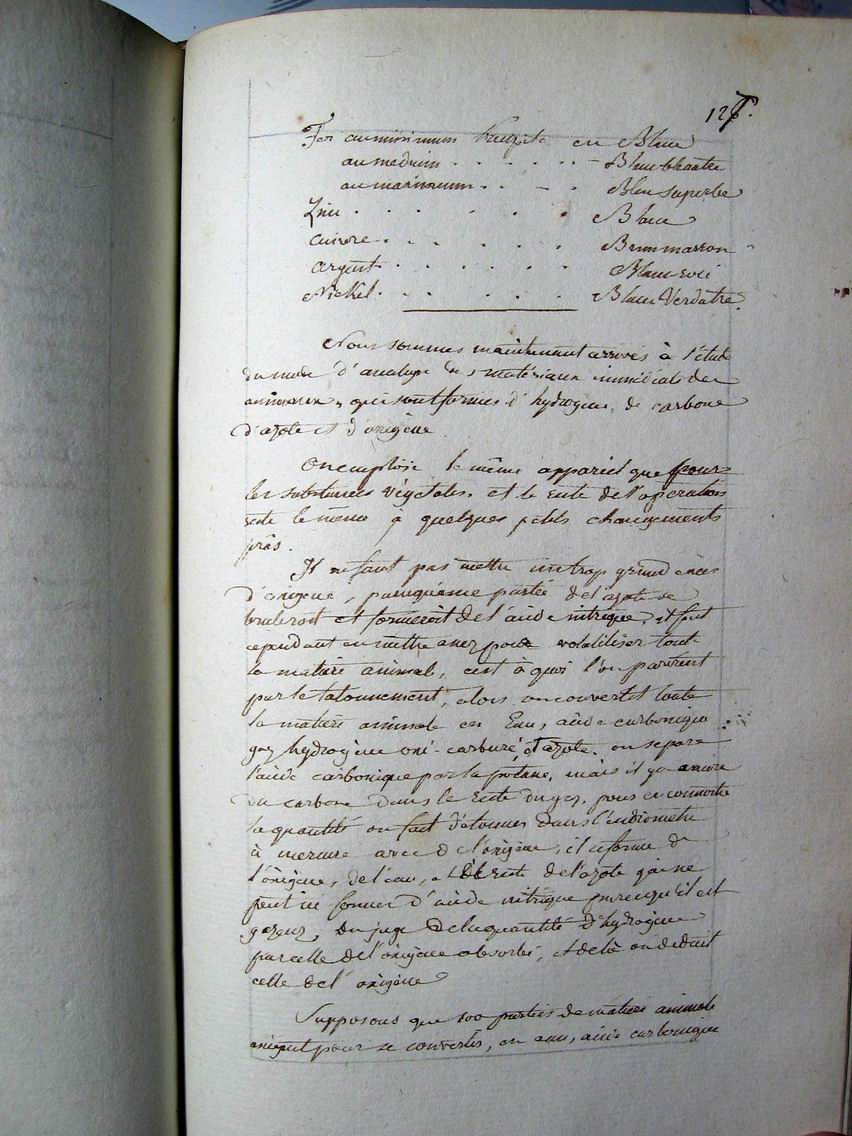 127.
Fer au minimum en Blanc
au medium Blanc bleuatre
au maximum Bleu superbe
Zinc Blanc
cuivre Brun marron
argent Blanc
Nickel Blanc Verdatre
Nous sommes maintenant arrivés à l'étude
du mode d'analyse des matériaux immédiats des
animaux, qui sont formés d'hydrogène, de carbone
d'azote et d'oxigène
On emploie le même appareil que pour
les substances végétales, et le reste de l'opération
reste le même à quelques petits changements
près.
Il ne faut pas mettre un trop grand excès
d'oxigène, parcequ'une partie de l'azote se
bruleroit et formeroit de l'acide nitrique, il faut
cependant en mettre assez pour volatiliser tout
la matière animale, c'est à quoi l'on parvient
par le tatonnement, alors on convertit toute
la matière animale en Eau, acide carbonique
gaz hydrogène oxi-carburé et azote. on separe
l'acide carbonique par la potasse, mais il y a encore
du carbone dans le reste du gaz, pour en connoitre
la quantité on fait détonner dans l'eudiomètre
à mercure avec de l'oxigène, il se forme de
l'oxigène, de l'eau, et il reste de l'azote qui ne
peut ici former d'acide nitrique parcequ'il est
gazeux, on juge de la quantité d'hydrogène
par celle de l'oxigène absorbé, et de là on deduit
celle de l'oxigène
Supposons que 100 parties de matière animale
exigent pour se convertir, en eau, acide carbonique